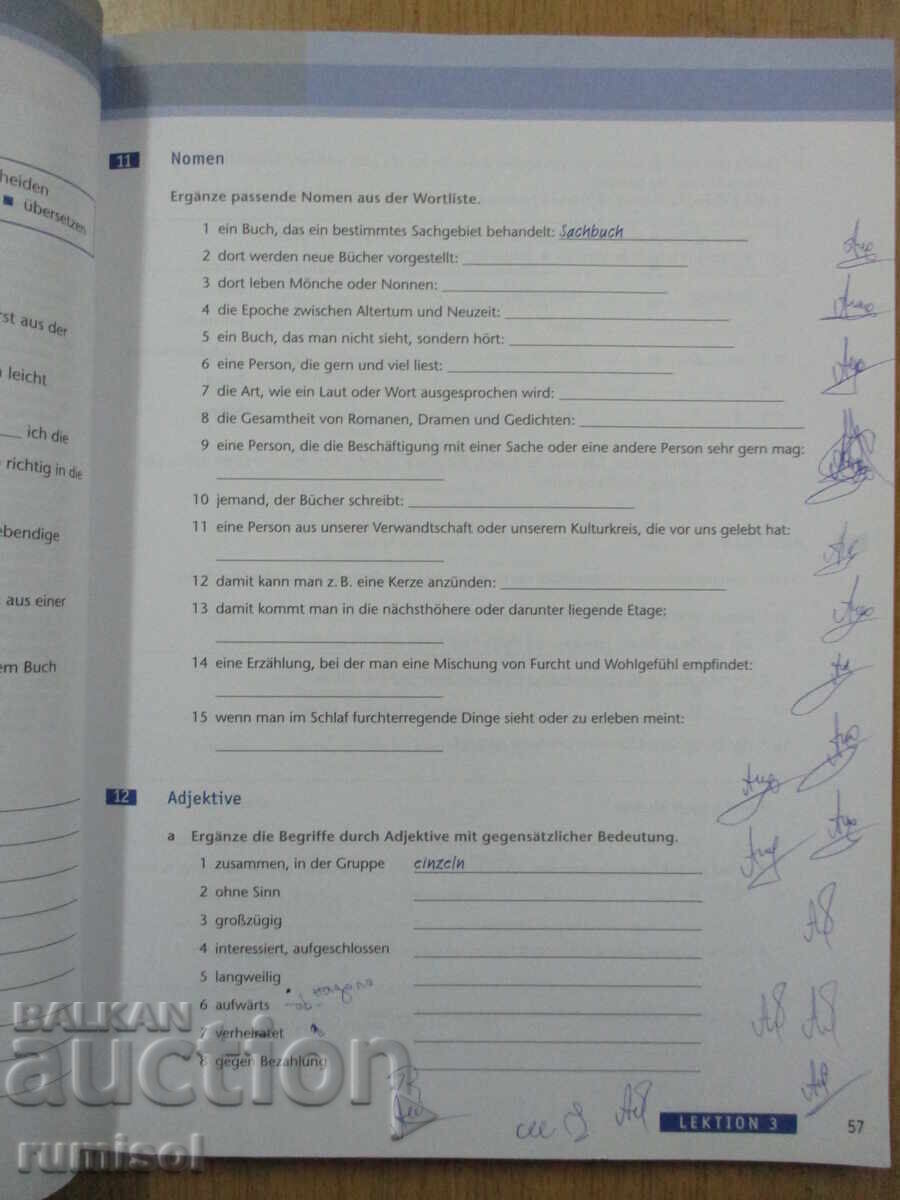 heiden
übersetzen
rst aus der
leicht
ich die
richtig in die
ebendige
aus einer
em Buch
11 Nomen
Ergänze passende Nomen aus der Wortliste.
1 ein Buch, das ein bestimmtes Sachgebiet behandelt: Sachbuch
2 dort werden neue Bücher vorgestellt:
3 dort leben Mönche oder Nonnen:
4 die Epoche zwischen Altertum und Neuzeit:
5 ein Buch, das man nicht sieht, sondern hört:
6 eine Person, die gern und viel liest:
7 die Art, wie ein Laut oder Wort ausgesprochen wird:
8 die Gesamtheit von Romanen, Dramen und Gedichten:
9 eine Person, die die Beschäftigung mit einer Sache oder eine andere Person sehr gern mag:
10 jemand, der Bücher schreibt:
11 eine Person aus unserer Verwandtschaft oder unserem Kulturkreis, die vor uns gelebt hat:
12 damit kann man z. B. eine Kerze anzünden:
13 damit kommt man in die nächsthöhere oder darunter liegende Etage:
14 eine Erzählung, bei der man eine Mischung von Furcht und Wohlgefühl empfindet:
15 wenn man im Schlaf furchterregende Dinge sieht oder zu erleben meint:
12 Adjektive
a Ergänze die Begriffe durch Adjektive mit gegensätzlicher Bedeutung.
1 zusammen, in der Gruppe einzeln
2 ohne Sinn
3 großzügig
4 interessiert, aufgeschlossen
5 langweilig
6 aufwärts
7 verheiratet
8 gegen Bezahlung
LEKTION 3 57
BALKAN
auction
rumisol